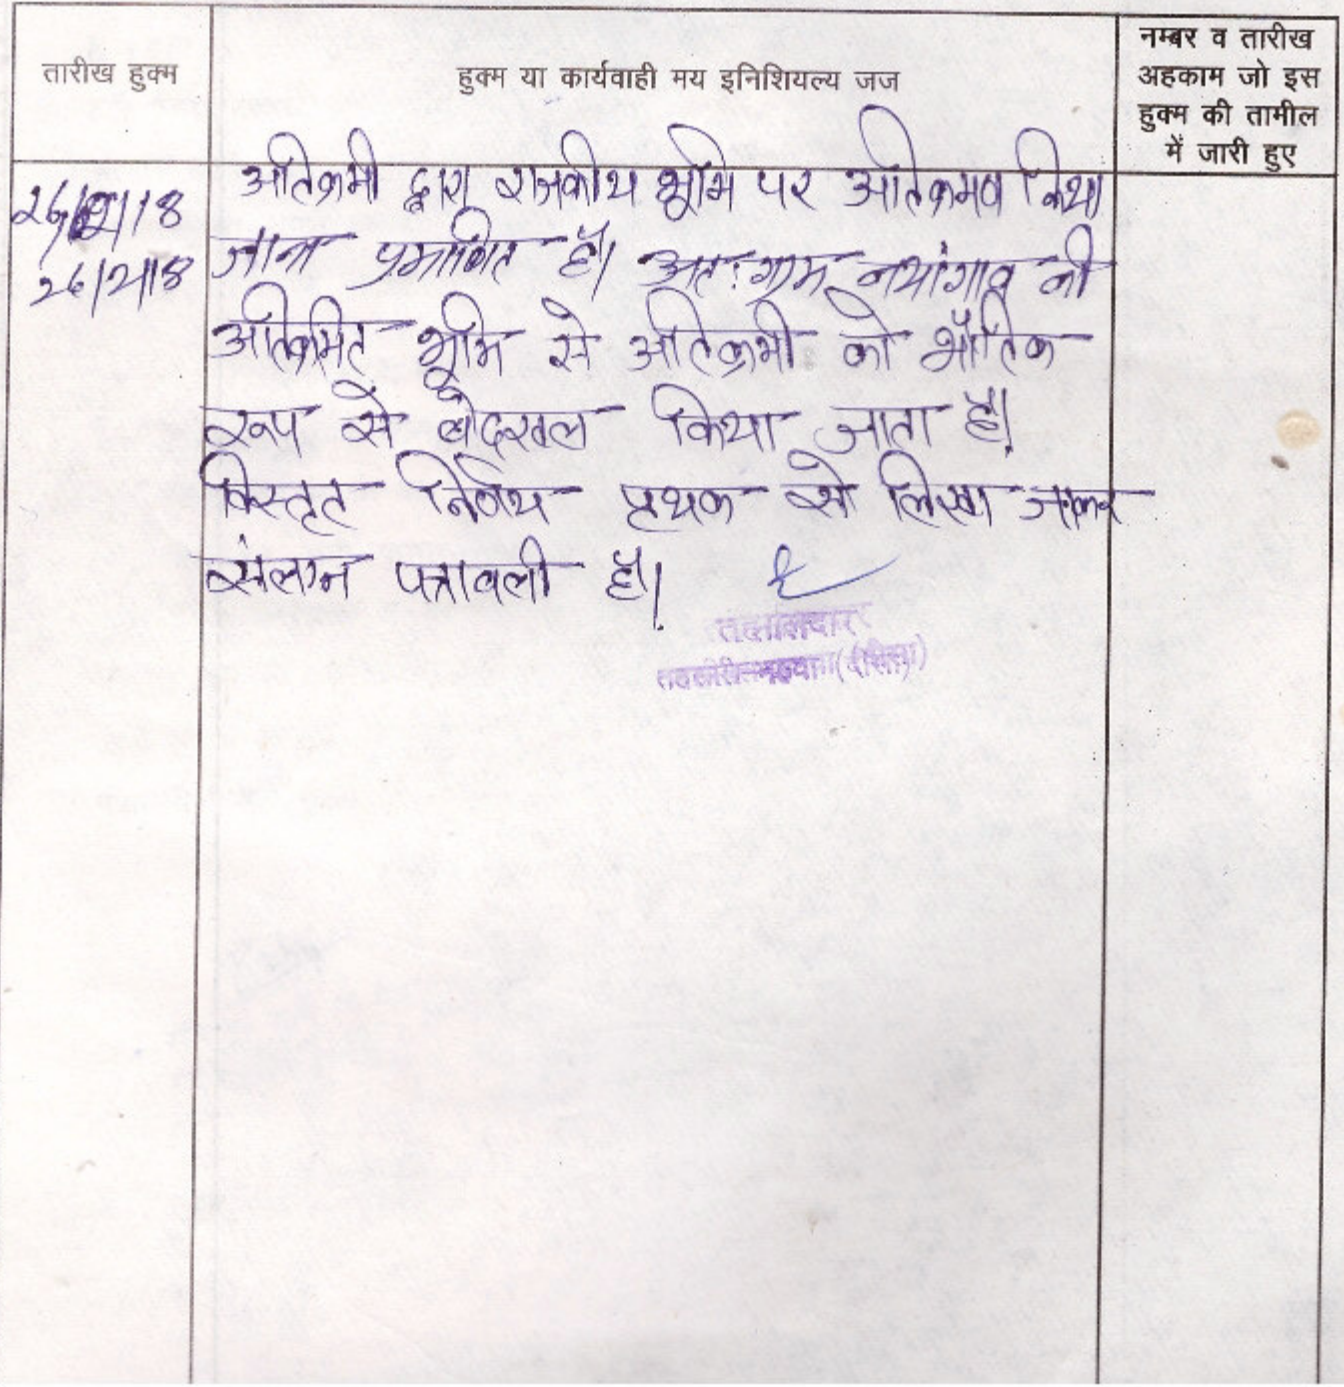 तारीख हुक्म
हुक्म या कार्यवाही मय इनिशियल्य जज
नम्बर व तारीख
अहकाम जो इस
हुक्म की तामील
में जारी हुए
26/2/18
अतिक्रमी द्वारा राजकीय भूमि पर अतिक्रमण किया
जाना प्रमाणित है। अतः ग्राम नयागांव की
अतिक्रमित भूमि से अतिक्रमी को भौतिक
रूप से बेदखल किया जाता है।
विस्तृत निर्णय पृथक से लिखा जाकर
संलग्न पत्रावली है।
तहसीलदार
(दौसा)